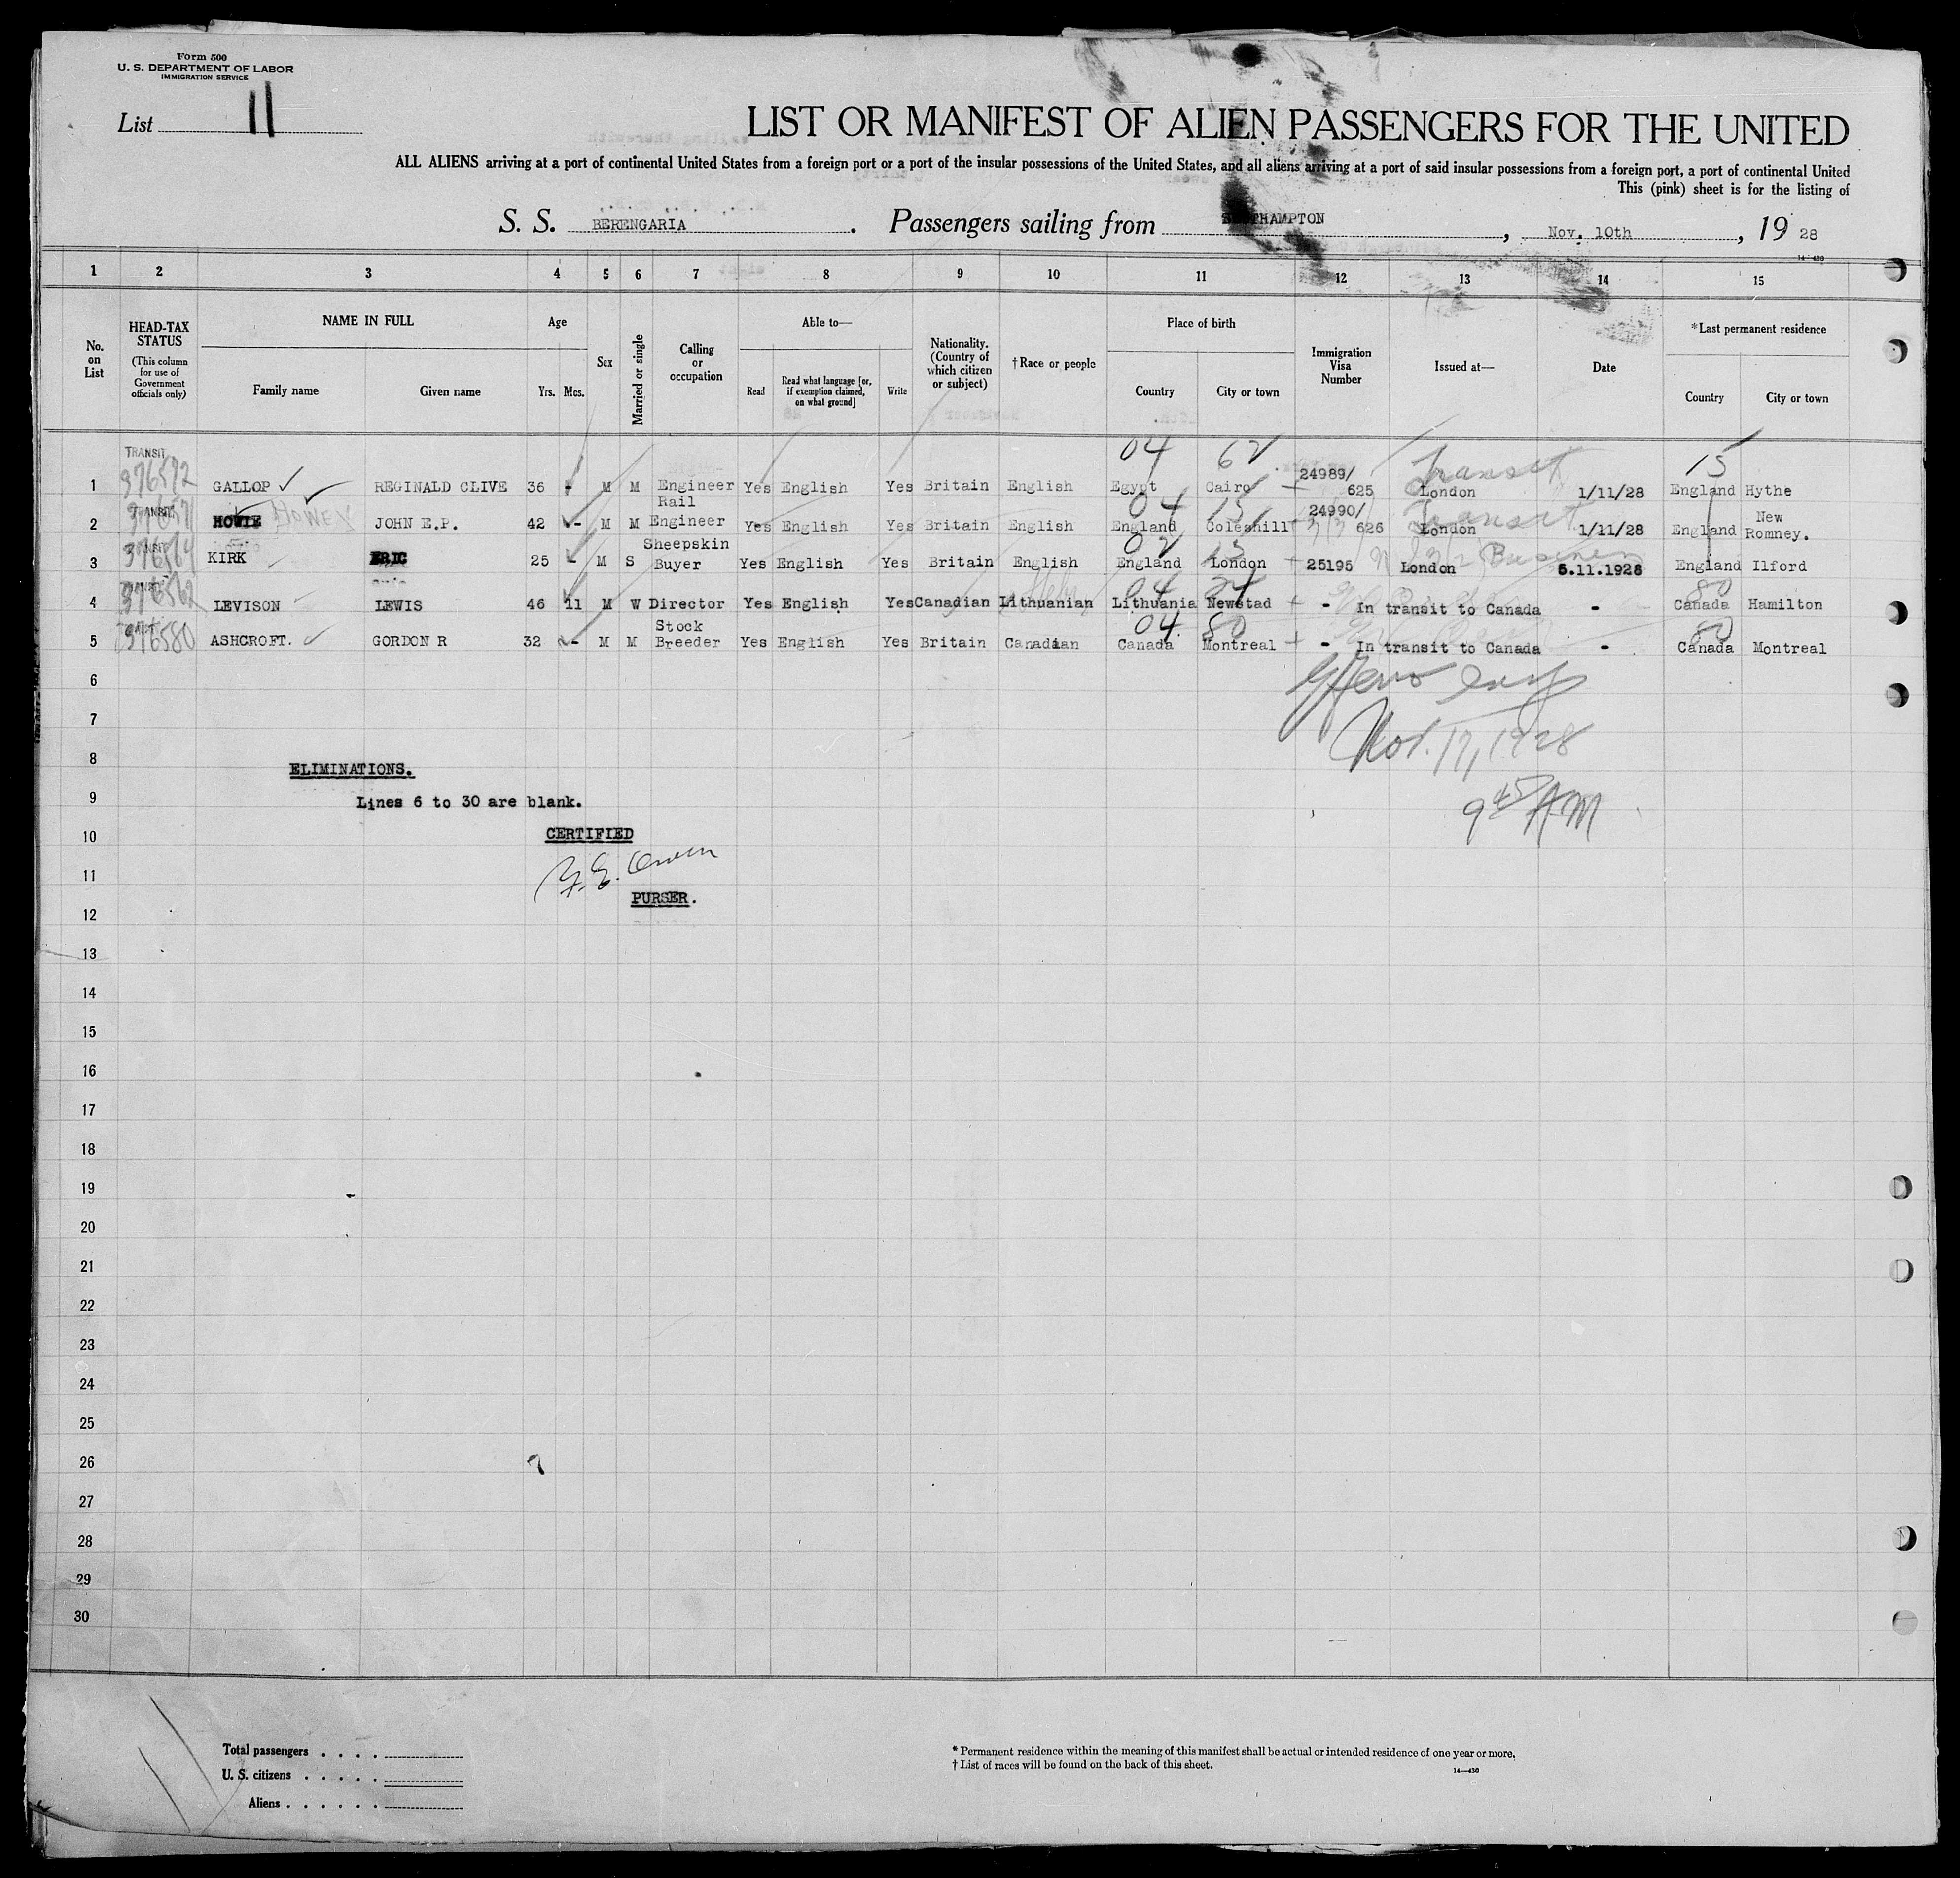 Form 500
U. S. DEPARTMENT OF LABOR
IMMIGRATION SERVICE
List 11
LIST OR MANIFEST OF ALIEN PASSENGERS FOR THE UNITED
ALL ALIENS arriving at a port of continental United States from a foreign port or a port of the insular possessions of the United States, and all aliens arriving at a port of said insular possessions from a foreign port, a port of continental United
This (pink) sheet is for the listing of
S. S. BERENGARIA. Passengers sailing from SOUTHAMPTON, Nov. 10th, 19 28
14-430
1 2 3 4 5 6 7 8 9 10 11 12 13 14 15
No. on List
HEAD-TAX STATUS (This column for use of Government officials only)
NAME IN FULL
Family name Given name
Age
Yrs. Mos.
Sex
Married or single
Calling or occupation
Able to—
Read Read what language [or, if exemption claimed, on what ground] Write
Nationality. (Country of which citizen or subject)
†Race or people
Place of birth
Country City or town
Immigration Visa Number
Issued at—
Date
*Last permanent residence
Country City or town
04 62 Transit 15
1 TRANSIT 376572 GALLOP REGINALD CLIVE 36 - M M Engineer Yes English Yes Britain English Egypt Cairo 24989/625 London 1/11/28 England Hythe
04 15 Transit
2 TRANSIT 376571 HOWIE HOWEY JOHN E.P. 42 - M M Rail Engineer Yes English Yes Britain English England Coleshill 24990/626 London 1/11/28 England New Romney.
02 Business
3 376564 KIRK ERIC 25 - M S Sheepskin Buyer Yes English Yes Britain English England London 25195 London 5.11.1928 England Ilford
04 24 80
4 LEVISON LEWIS 46 11 M W Director Yes English Yes Canadian Lithuanian Lithuania Newstad - In transit to Canada - Canada Hamilton
04 80 80
5 376580 ASHCROFT. GORDON R 32 - M M Stock Breeder Yes English Yes Britain Canadian Canada Montreal - In transit to Canada - Canada Montreal
6
7
Nov. 17, 1928
8
ELIMINATIONS.
9
Lines 6 to 30 are blank.
9 45 AM
10
CERTIFIED
11
12
PURSER.
13
14
15
16
17
18
19
20
21
22
23
24
25
26
27
28
29
30
Total passengers . . . .
U. S. citizens . . . . .
Aliens . . . . . .
* Permanent residence within the meaning of this manifest shall be actual or intended residence of one year or more.
† List of races will be found on the back of this sheet.
14—430